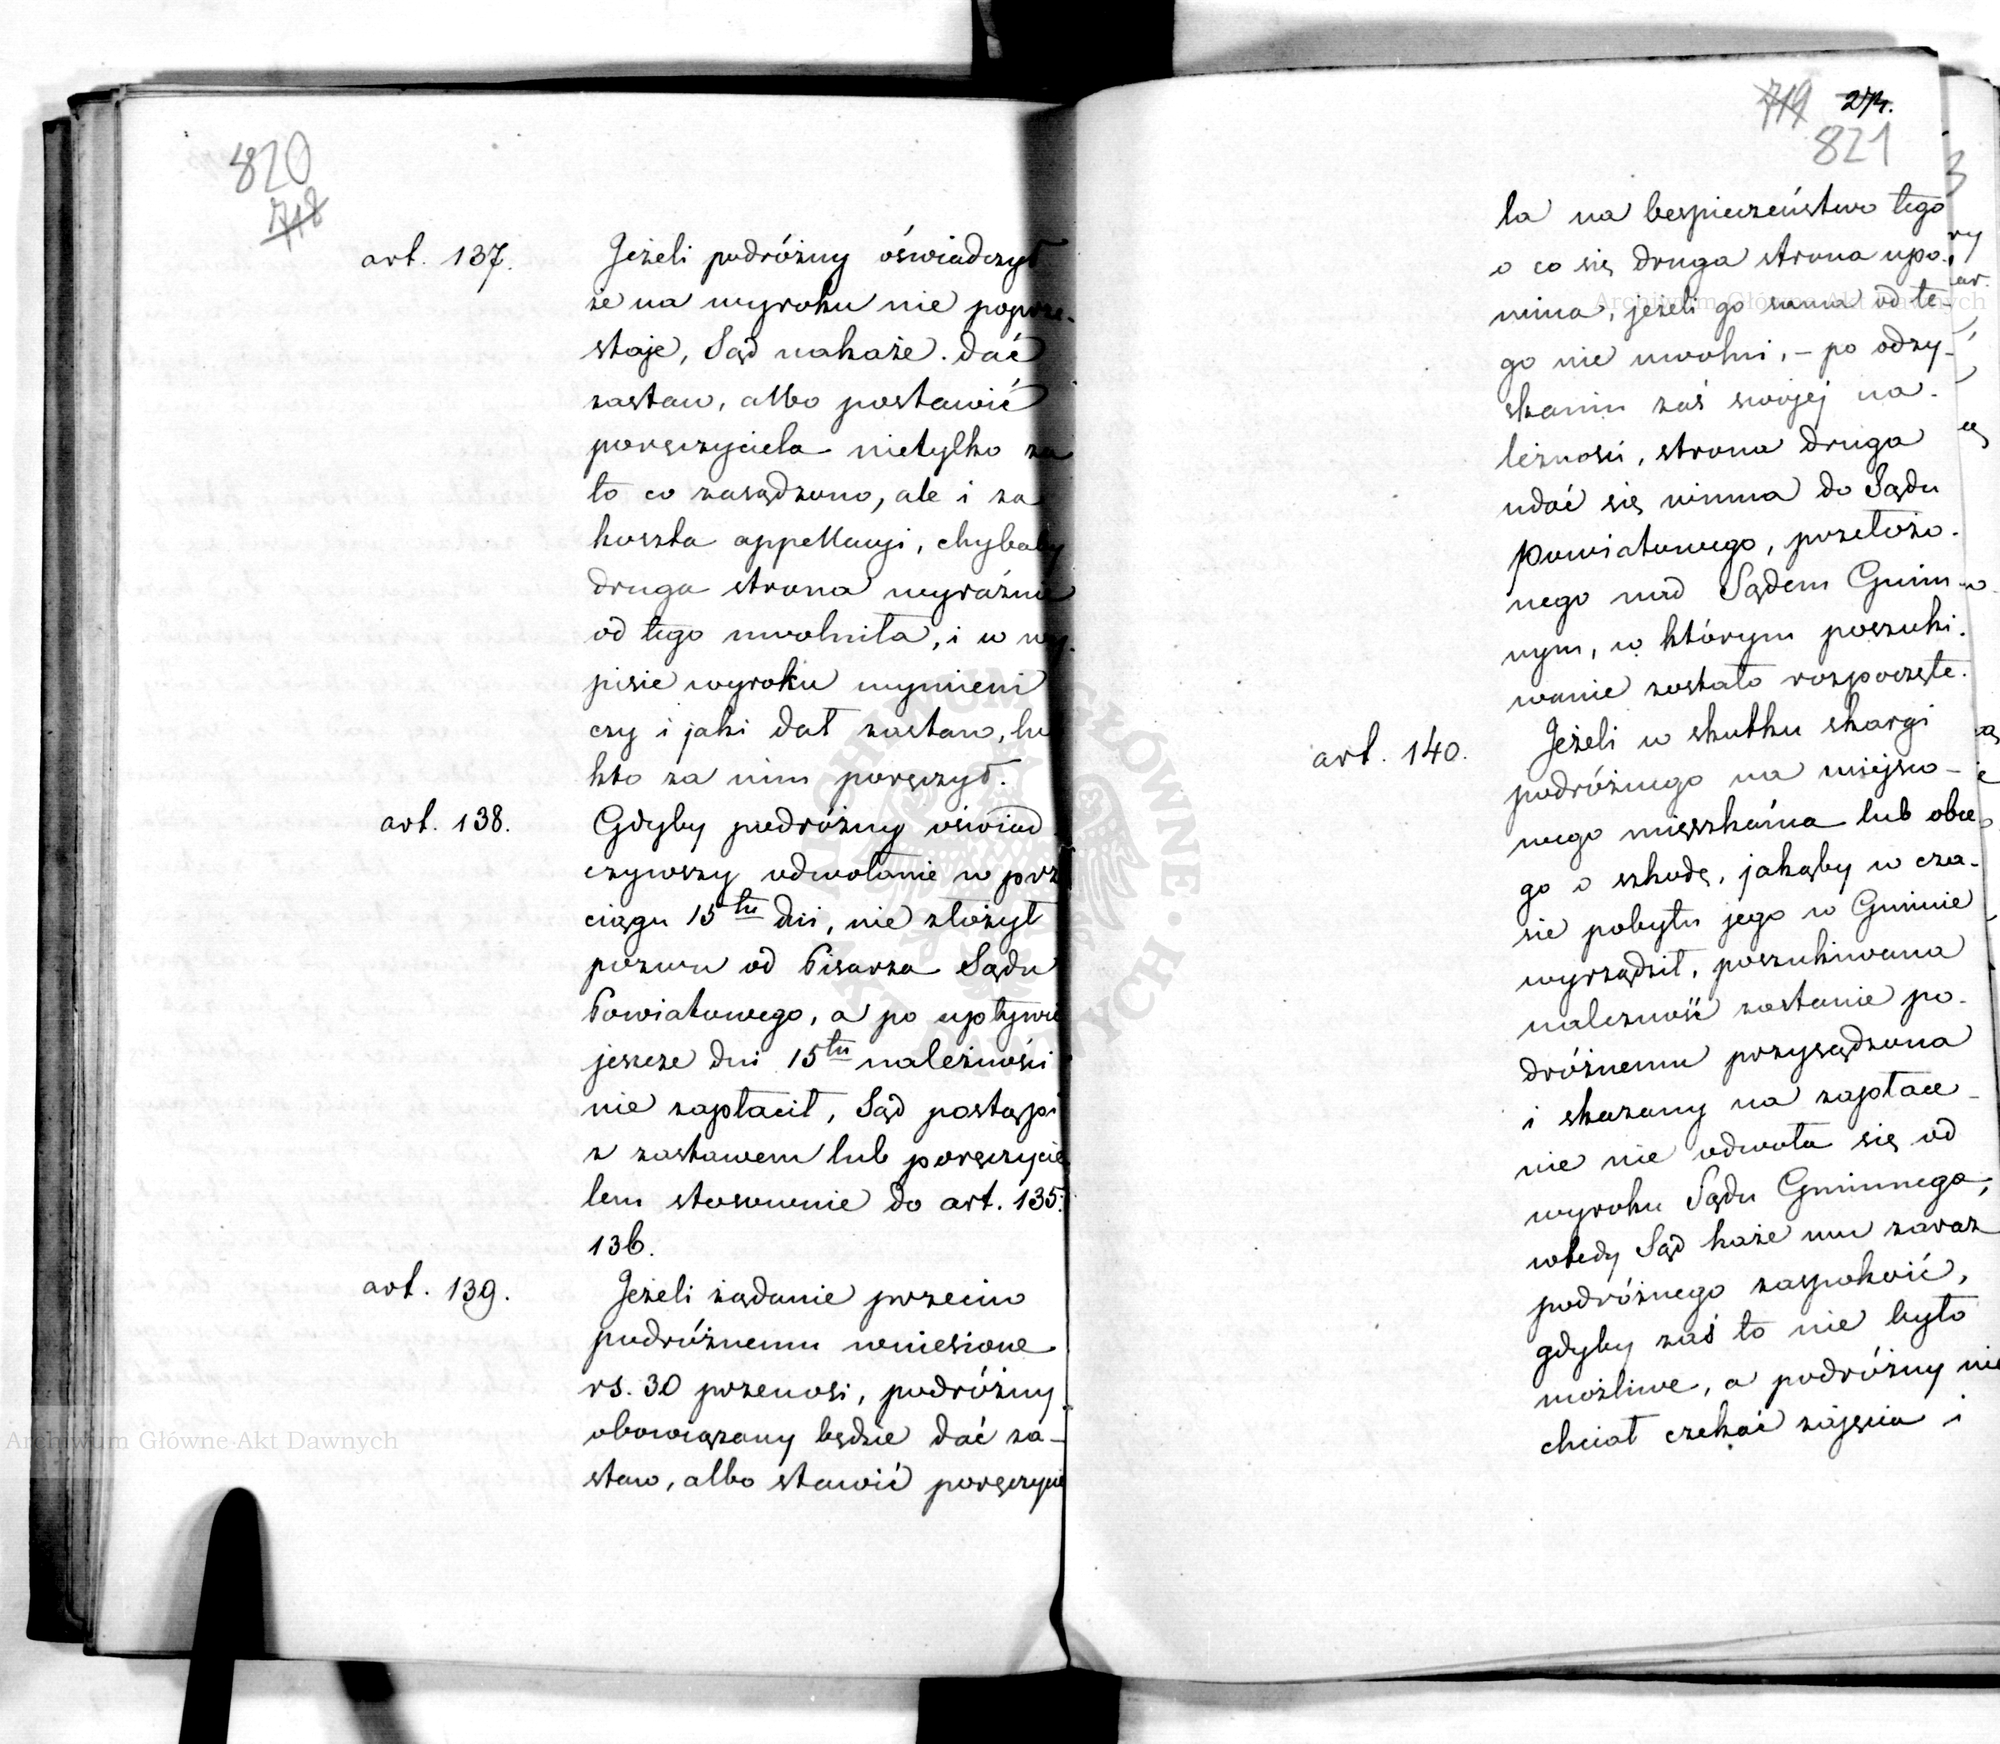 820
718
art. 137. Jeżeli podróżny oświadczył
że na wyroku nie poprze-
staje, Sąd nakaże dać
zastaw, albo postawić
poręczyciela nietylko za
to co zasądzono, ale i za
koszta appellacyi, chybaby
druga strona wyraźnie
od tego uwolniła, i w wy-
pisie wyroku wymieni
czy i jaki dał zastaw, lub
kto za nim poręczył.
art. 138. Gdyby podróżny oświad
czywszy odwołanie w prze
ciągu 15tu dni, nie złożył
pozwu od Pisarza Sądu
Powiatowego, a po upływie
jeszcze dni 15tu należności
nie zapłacił, Sąd postąpi
z zastawem lub poręczycie
lem stosownie do art. 135.
136.
art. 139. Jeżeli żądanie przeciw
podróżnemu wniesione
rs. 30 przenosi, podróżny
obowiązany będzie dać za-
staw, albo stawić poręczycie
719 274.
821
la na bespieczeństwo tego
o co się druga strona upo-
mina, jeżeli go sama od te-
go nie uwolni, – po odzy-
skaniu zaś swojej na-
leżności, strona druga
udać się winna do Sądu
Powiatowego, przełożo-
nego nad Sądem Gmin-
nym, w którym poszuki-
wanie zostało rozpoczęte.
art. 140. Jeżeli w skutku skargi
podróżnego na miejsco-
wego mieszkańca lub obce-
go o szkodę, jakąby w cza-
sie pobytu jego w Gminie
wyrządził, poszukiwana
należność zostanie po-
dróżnemu przysądzona
i skazany na zapłace-
nie nie odwoła się od
wyroku Sądu Gminnego,
wtedy Sąd każe mu zaraz
podróżnego zaspokoić,
gdyby zaś to nie było
możliwe, a podróżny nie
chciał czekać zajęcia i
Archiwum Główne Akt Dawnych
Archiwum Główne Akt Dawnych
ARCHIWUM GŁÓWNE AKT DAWNYCH